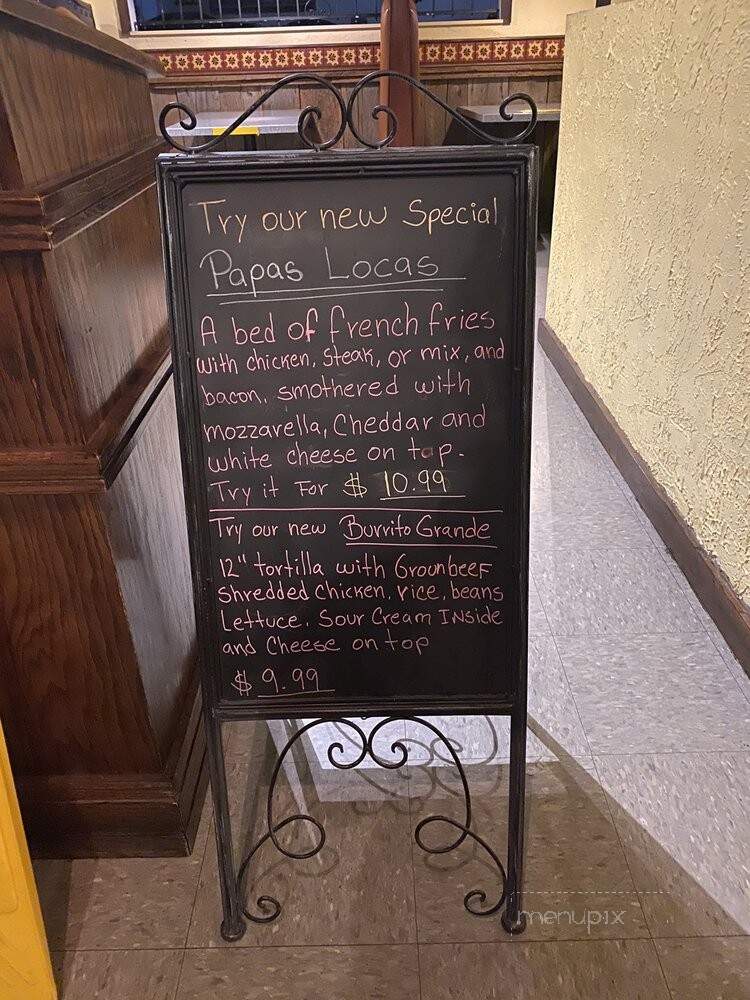 Try our new Special
Papas Locas
A bed of french fries
with chicken, Steak, or mix, and
bacon, smothered with
mozzarella, Cheddar and
white cheese on top.
Try it For $ 10.99
Try our new Burrito Grande
12" tortilla with Grounbeef
Shredded Chicken, rice, beans
Lettuce, Sour Cream INside
and Cheese on top
$ 9.99
menupix